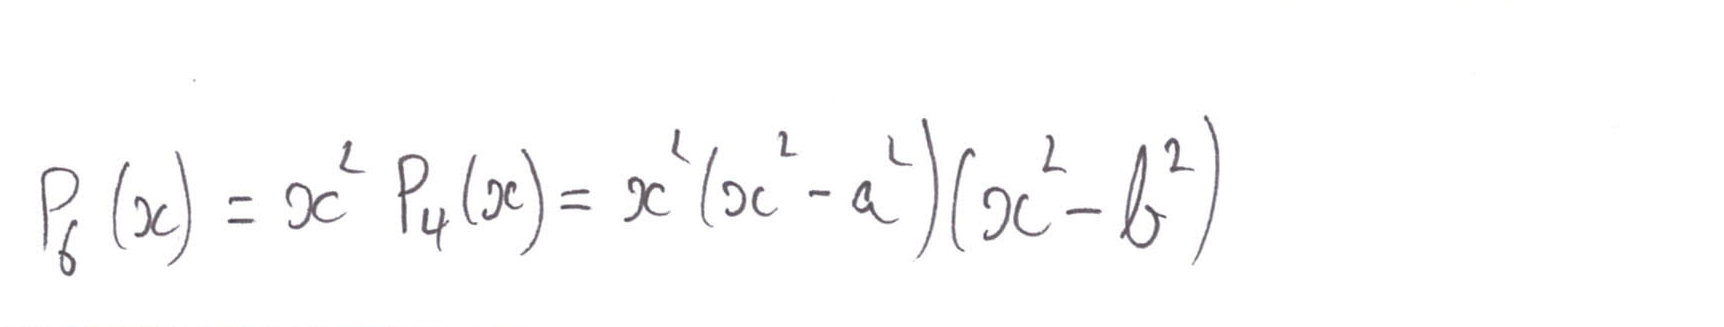 P₆(x) = x² P₄(x) = x²(x² - a²)(x² - b²)